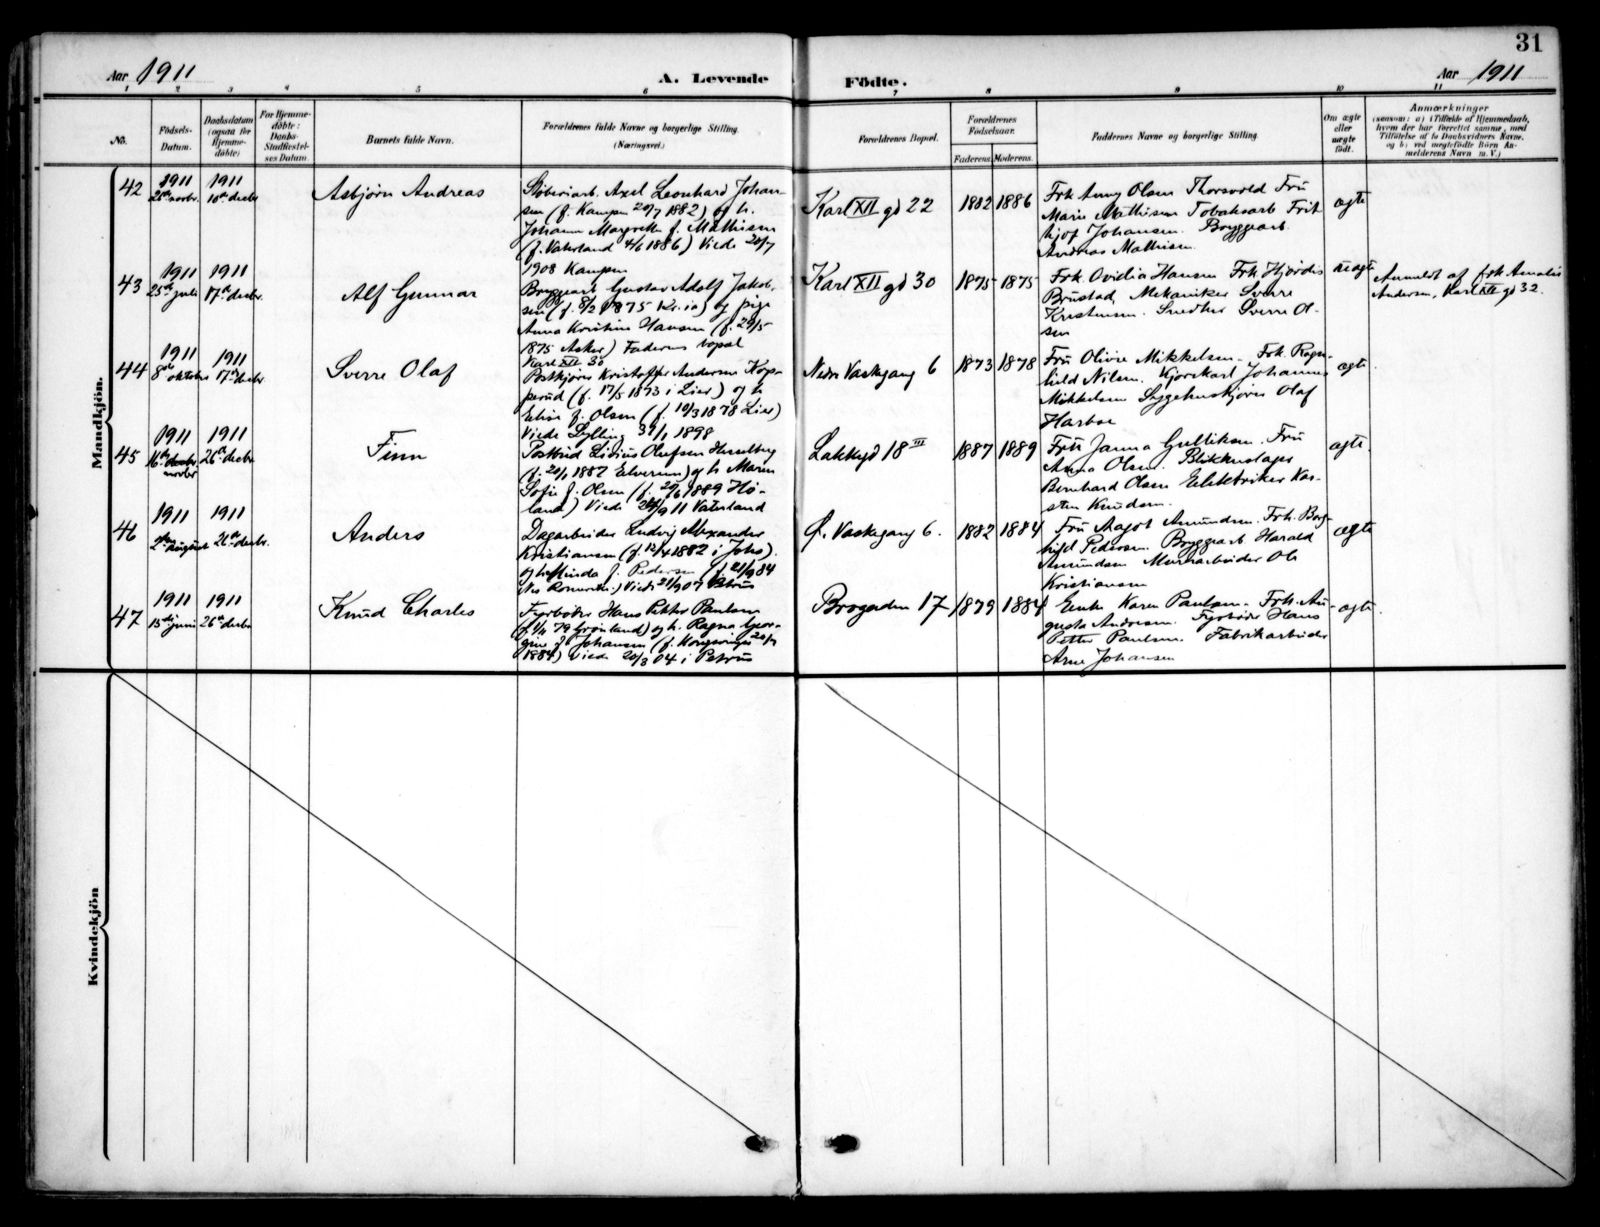 31
Aar 1911
A. Levende
Födte.
Aar 1911
1 2 3 4 5 6 7 8 9 10 11
No.
Födsels-
Datum.
Daabsdatum
(ogsaa for
Hjemme-
döbte)
For Hjemme-
döbte:
Daabs-
Stadfæstel-
ses Datum.
Barnets fulde Navn.
Forældrenes fulde Navne og borgerlige Stilling.
(Næringsvei.)
Forældrenes Bopæl.
Forældrenes
Födselsaar.
Faderens. Moderens.
Faddernes Navne og borgerlige Stilling.
Om ægte
eller
uægte
födt.
Anmærkninger
Mandkjön.
42
1911
1911
10de decbr
Asbjörn Andreas
Axel Leonhard Johan-
sen (f. Kampen 20/7 1882) og h.
Johanne Margrethe f. Mathisen
(f. Vaterland 4/6 1886) Viede 20/7
1908 Kampen
Karl XII gd 22
1882 1886
Frk Anny Olsen Thorsvold Fru
Marie Mathisen Tobaksarb Frit
hjof Johansen. Bryggearb.
Andreas Mathisen
ægte
43
1911
25de juli
1911
17de decbr.
Alf Gunnar
Bryggearb Gustav Adolf Jakob-
sen (f. 8/2 1875 Kr.ia) og pige
Anna Kristine Hansen (f. 29/5
1875 Asker) Faderens bopæl
Karl XII 30
Karl XII gd 30
1875 1875
Frk. Ovidia Hansen Frk Hjördis
Brustad, Mekaniker Sverre
Kristensen. Snedker Sverre Ol-
sen
uægte
Anmeldt af frk Amalie
Andersen, Karl XII gd 32.
44
1911
8de oktober
1911
17de decbr
Sverre Olaf
Postkjörer Kristoffer Andersen Kop-
perud (f. 17/5 1873 i Lier) og h
Eline f. Olsen (f. 19/3 1878 Lier)
Viede Sylling 31/1 1898
Nedre Vaskegang 6
1873 1878
Fru Olivie Mikkelsen. Frk. Ragn-
hild Nilsen. Kjörekarl Johannes
Mikkelsen Sygehuskjörer Olaf
Harboe
ægte
45
1911
16de decbr
novbr
1911
26de decbr
Finn
Postbud Lidius Olufsen Hesselberg
(f. 20/1 1887 Elverum) og h Maren
Sofie f. Olsen (f. 20/6 1889 Hö-
land) Viede 24/9 11 Vaterland
Lakkegd 18 III
1887 1889
Fru Janna Gulliksen. Fru
Anna Olsen. Blikkenslager
Bernhard Olsen Elektriker Kar-
sten Knudsen.
ægte
46
1911
2den august
1911
26de decbr.
Anders
Dagarbeider Ludvig Alexander
Kristiansen (f. 12/4 1882 i Johs).
og h Minda f. Pedersen (f. 21/9 84
Nes Romerike) Viede 21/9 07 Petrus
Ö. Vaskegang 6.
1882 1884
Fru Magot Amundsen. Frk. Borg-
hild Pedersen. Bryggearb Harald
Amundsen Murarbeider Ole
Kristiansen
ægte
47
1911
15de juni
1911
26de decbr
Knud Charles
Fyrböder Hans Petter Paulsen
(f. 1/11 79 Grönland) og h. Ragna Geor-
gine f. Johansen (f. Kongsvinger 20/7
1884) Viede 20/3 04 i Petrus
Brogaden 17
1879 1884
Enke Karen Paulsen. Frk. Au-
gusta Andersen. Fyrböder Hans
Petter Paulsen. Fabrikarbeider
Arne Johansen
ægte.
Kvindekjön